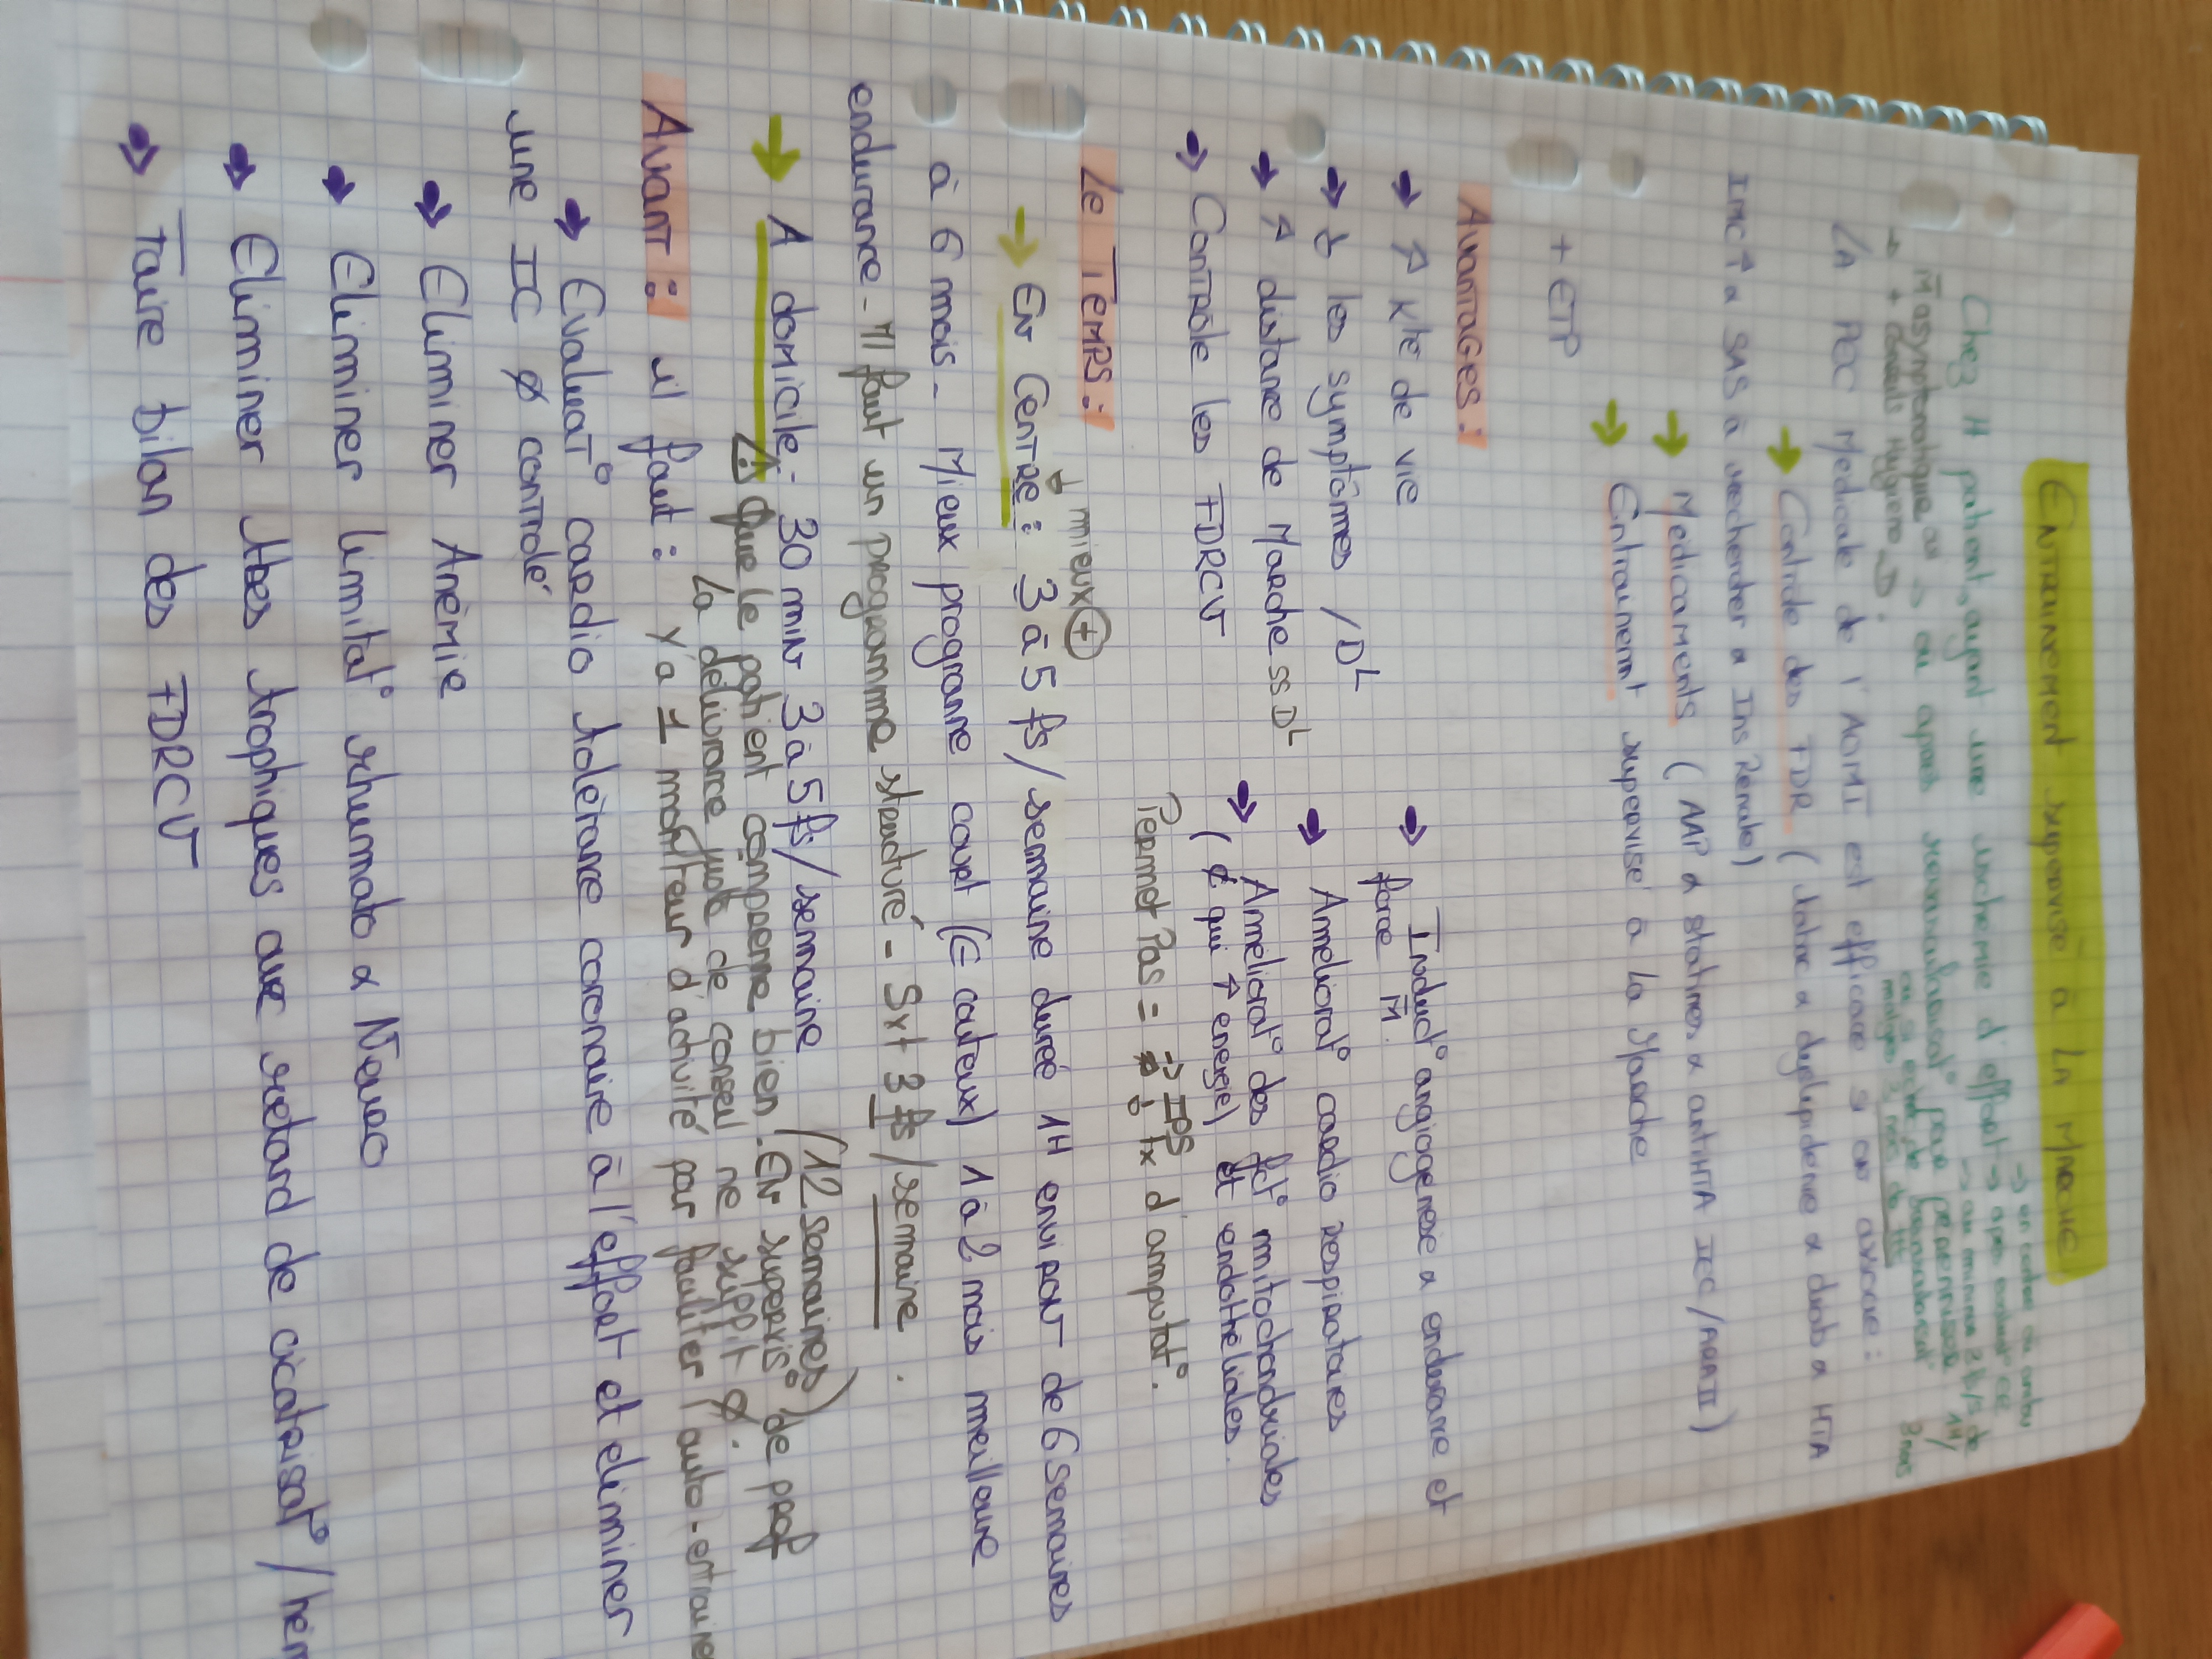 Entrainement supervisé à la Marche
Chez H patient ayant une ischémie d'effort → après evaluat° CE
→ en centre ou
→ au minimum 3 fs/S de 1H/
3 mois
M̄ asymptomatique ou → ou après revascularisat° par
→ + Conseils Hygièno D.
La PEC Medicale de l'AOMI est efficace si on associe :
→ Contrôle des FDR (tabac & dyslipidemie & diab & HTA
IMC↑ & SAS à rechercher & Ins Rénale)
→ Medicaments (AAP & statines & antiHTA IEC/ARAII)
→ Entrainemt supervisé à la Marche
+ ETP
Avantages :
→ ↑ Kté de vie
→ ↓ les symptômes / DL
→ ↑ distance de Marche ss DL
→ Contrôle les FDRCV
→ Induct° angiogenèse & endurance et
force M̄.
→ Ameliorat° cardio respiratoires
→ Ameliorat° des fct° mitochondriales
(¢ qui ↑ energie) et endothéliales.
Permet Pas = → IPS
→ ↓ Tx d'amputat°.
Le Temps :
↓ mieux ⊕
→ En Centre : 3 à 5 fs/semaine durée 1H envi pour de 6 semaines
à 6 mois - Mieux programme court (E couteux) 1 à 2 mois meilleure
endurance - Il faut un programme structuré - Syt 3 fs/semaine.
→ A domicile : 30 min 3 à 5 fs/semaine (12 semaines)
⚠ Que le patient comprenne bien - En supervis° de prof
La délivrance juste de conseil ne suffit ∅.
Avant : il faut : y'a 1 moniteur d'activité par faciliter l'auto-entraine
→ Evaluat° cardio tolérance coronaire à l'effort et eliminer
une IC ∅ controlé
→ Eliminer Anémie
→ Eliminer limitat° rhumato & Neuro
→ Eliminer Ttes trophiques avc retard de cicatrisat° / hém
→ Faire bilan des FDRCV